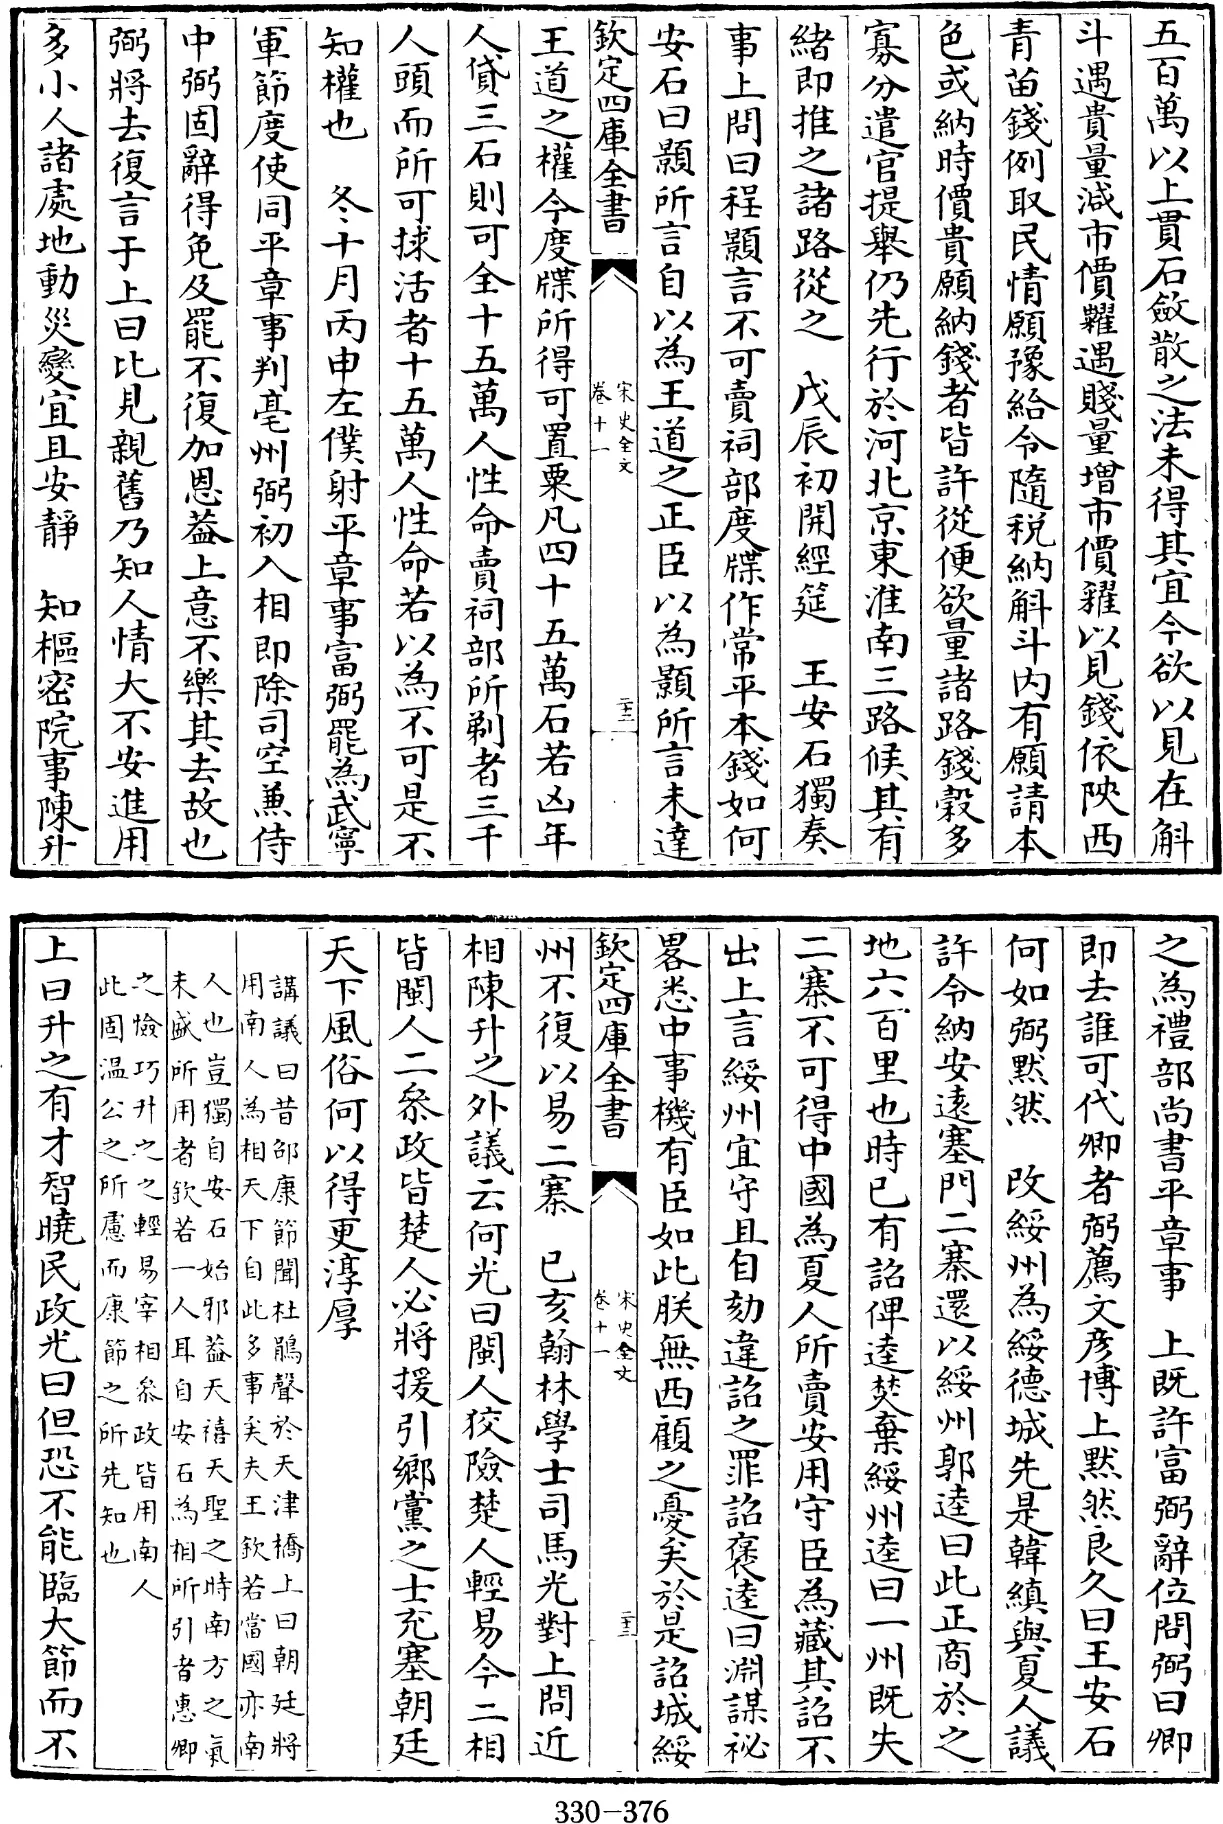 五百萬以上貫石斂散之法未得其宜今欲以見在斛
斗遇貴量減市價糶遇賤量增市價糴以見錢依陜西
青苗錢例取民情願豫給令隨税納斛斗内有願請本
色或納時價貴願納錢者皆許從便欲量諸路錢穀多
寡分遣官提舉仍先行於河北京東淮南三路候其有
緒即推之諸路從之　戊辰初開經筵　王安石獨奏
事上問曰程顥言不可賣祠部度牒作常平本錢如何
安石曰顥所言自以為王道之正臣以為顥所言未達
欽定四庫全書
宋史全文
卷十一
二十二
王道之權今度牒所得可置粟凡四十五萬石若凶年
人貸三石則可全十五萬人性命賣祠部所剃者三千
人頭而所可捄活者十五萬人性命若以為不可是不
知權也　冬十月丙申左僕射平章事富弼罷為武寧
軍節度使同平章事判亳州弼初入相即除司空兼侍
中弼固辭得免及罷不復加恩葢上意不樂其去故也
弼將去復言于上曰比見親舊乃知人情大不安進用
多小人諸處地動災變宜且安靜　知樞密院事陳升
之為禮部尚書平章事　上既許富弼辭位問弼曰卿
即去誰可代卿者弼薦文彦博上默然良久曰王安石
何如弼默然　改綏州為綏德城先是韓縝與夏人議
許令納安逺塞門二寨還以綏州郭逵曰此正商於之
地六百里也時已有詔俾逵焚棄綏州逵曰一州既失
二寨不可得中國為夏人所賣安用守臣為藏其詔不
出上言綏州宜守且自劾違詔之罪詔褒逵曰淵謀祕
畧悉中事機有臣如此朕無西顧之憂矣於是詔城綏
欽定四庫全書
宋史全文
卷十一
二十三
州不復以易二寨　已亥翰林學士司馬光對上問近
相陳升之外議云何光曰閩人狡險楚人輕易今二相
皆閩人二叅政皆楚人必將援引鄉黨之士充塞朝廷
天下風俗何以得更淳厚
講議曰昔邵康節聞杜鵑聲於天津橋上曰朝廷將
用南人為相天下自此多事矣夫王欽若當國亦南
人也豈獨自安石始邪葢天禧天聖之時南方之氣
未盛所用者欽若一人耳自安石為相所引者惠卿
之憸巧升之之輕易宰相叅政皆用南人
此固温公之所慮而康節之所先知也
上曰升之有才智曉民政光曰但恐不能臨大節而不
330-376